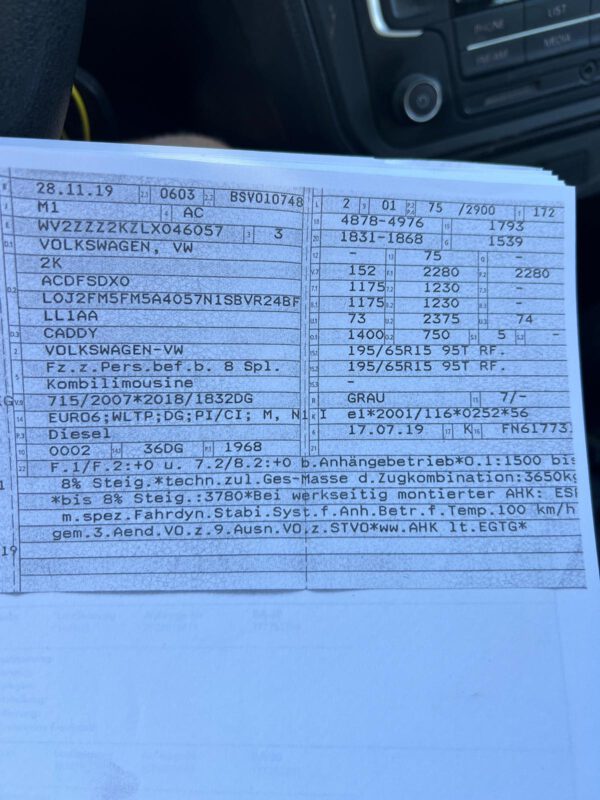 PHONE
LIST
NAV
MEDIA
B 28.11.19 2.1 0603 2.2 BSV010748
J M1 4 AC
E WV2ZZZ2KZLX046057 3 3
D.1 VOLKSWAGEN, VW
2K
D.2 ACDFSDX0
LOJ2FM5FM5A4057N1SBVR24BF
LL1AA
D.3 CADDY
2 VOLKSWAGEN-VW
5 Fz.z.Pers.bef.b. 8 Spl.
Kombilimousine
V.9 715/2007*2018/1832DG
14 EURO6;WLTP;DG;PI/CI; M, N1 I
P.3 Diesel
10 0002 14.1 36DG P.1 1968
L 2 9 01 P.2 P.4 75 /2900 T 172
18 4878-4976 19 1793
20 1831-1868 G 1539
- 13 75 Q -
V.7 152 F.1 2280 F.2 2280
7.1 1175 7.2 1230 7.3 -
8.1 1175 8.2 1230 8.3 -
U.1 73 U.2 2375 U.3 74
O.1 1400 O.2 750 S.1 5 S.2 -
15.1 195/65R15 95T RF.
15.2 195/65R15 95T RF.
15.3 -
R GRAU 11 7/-
K e1*2001/116*0252*56
6 17.07.19 17 K 16 FN61773
21
22 F.1/F.2:+0 u. 7.2/8.2:+0 b.Anhängebetrieb*O.1:1500 bis
8% Steig.*techn.zul.Ges-Masse d.Zugkombination:3650kg
*bis 8% Steig.:3780*Bei werkseitig montierter AHK: ESP
m.spez.Fahrdyn.Stabi.Syst.f.Anh.Betr.f.Temp.100 km/h
gem.3.Aend.VO.z.9.Ausn.VO.z.STVO*ww.AHK lt.EGTG*
19